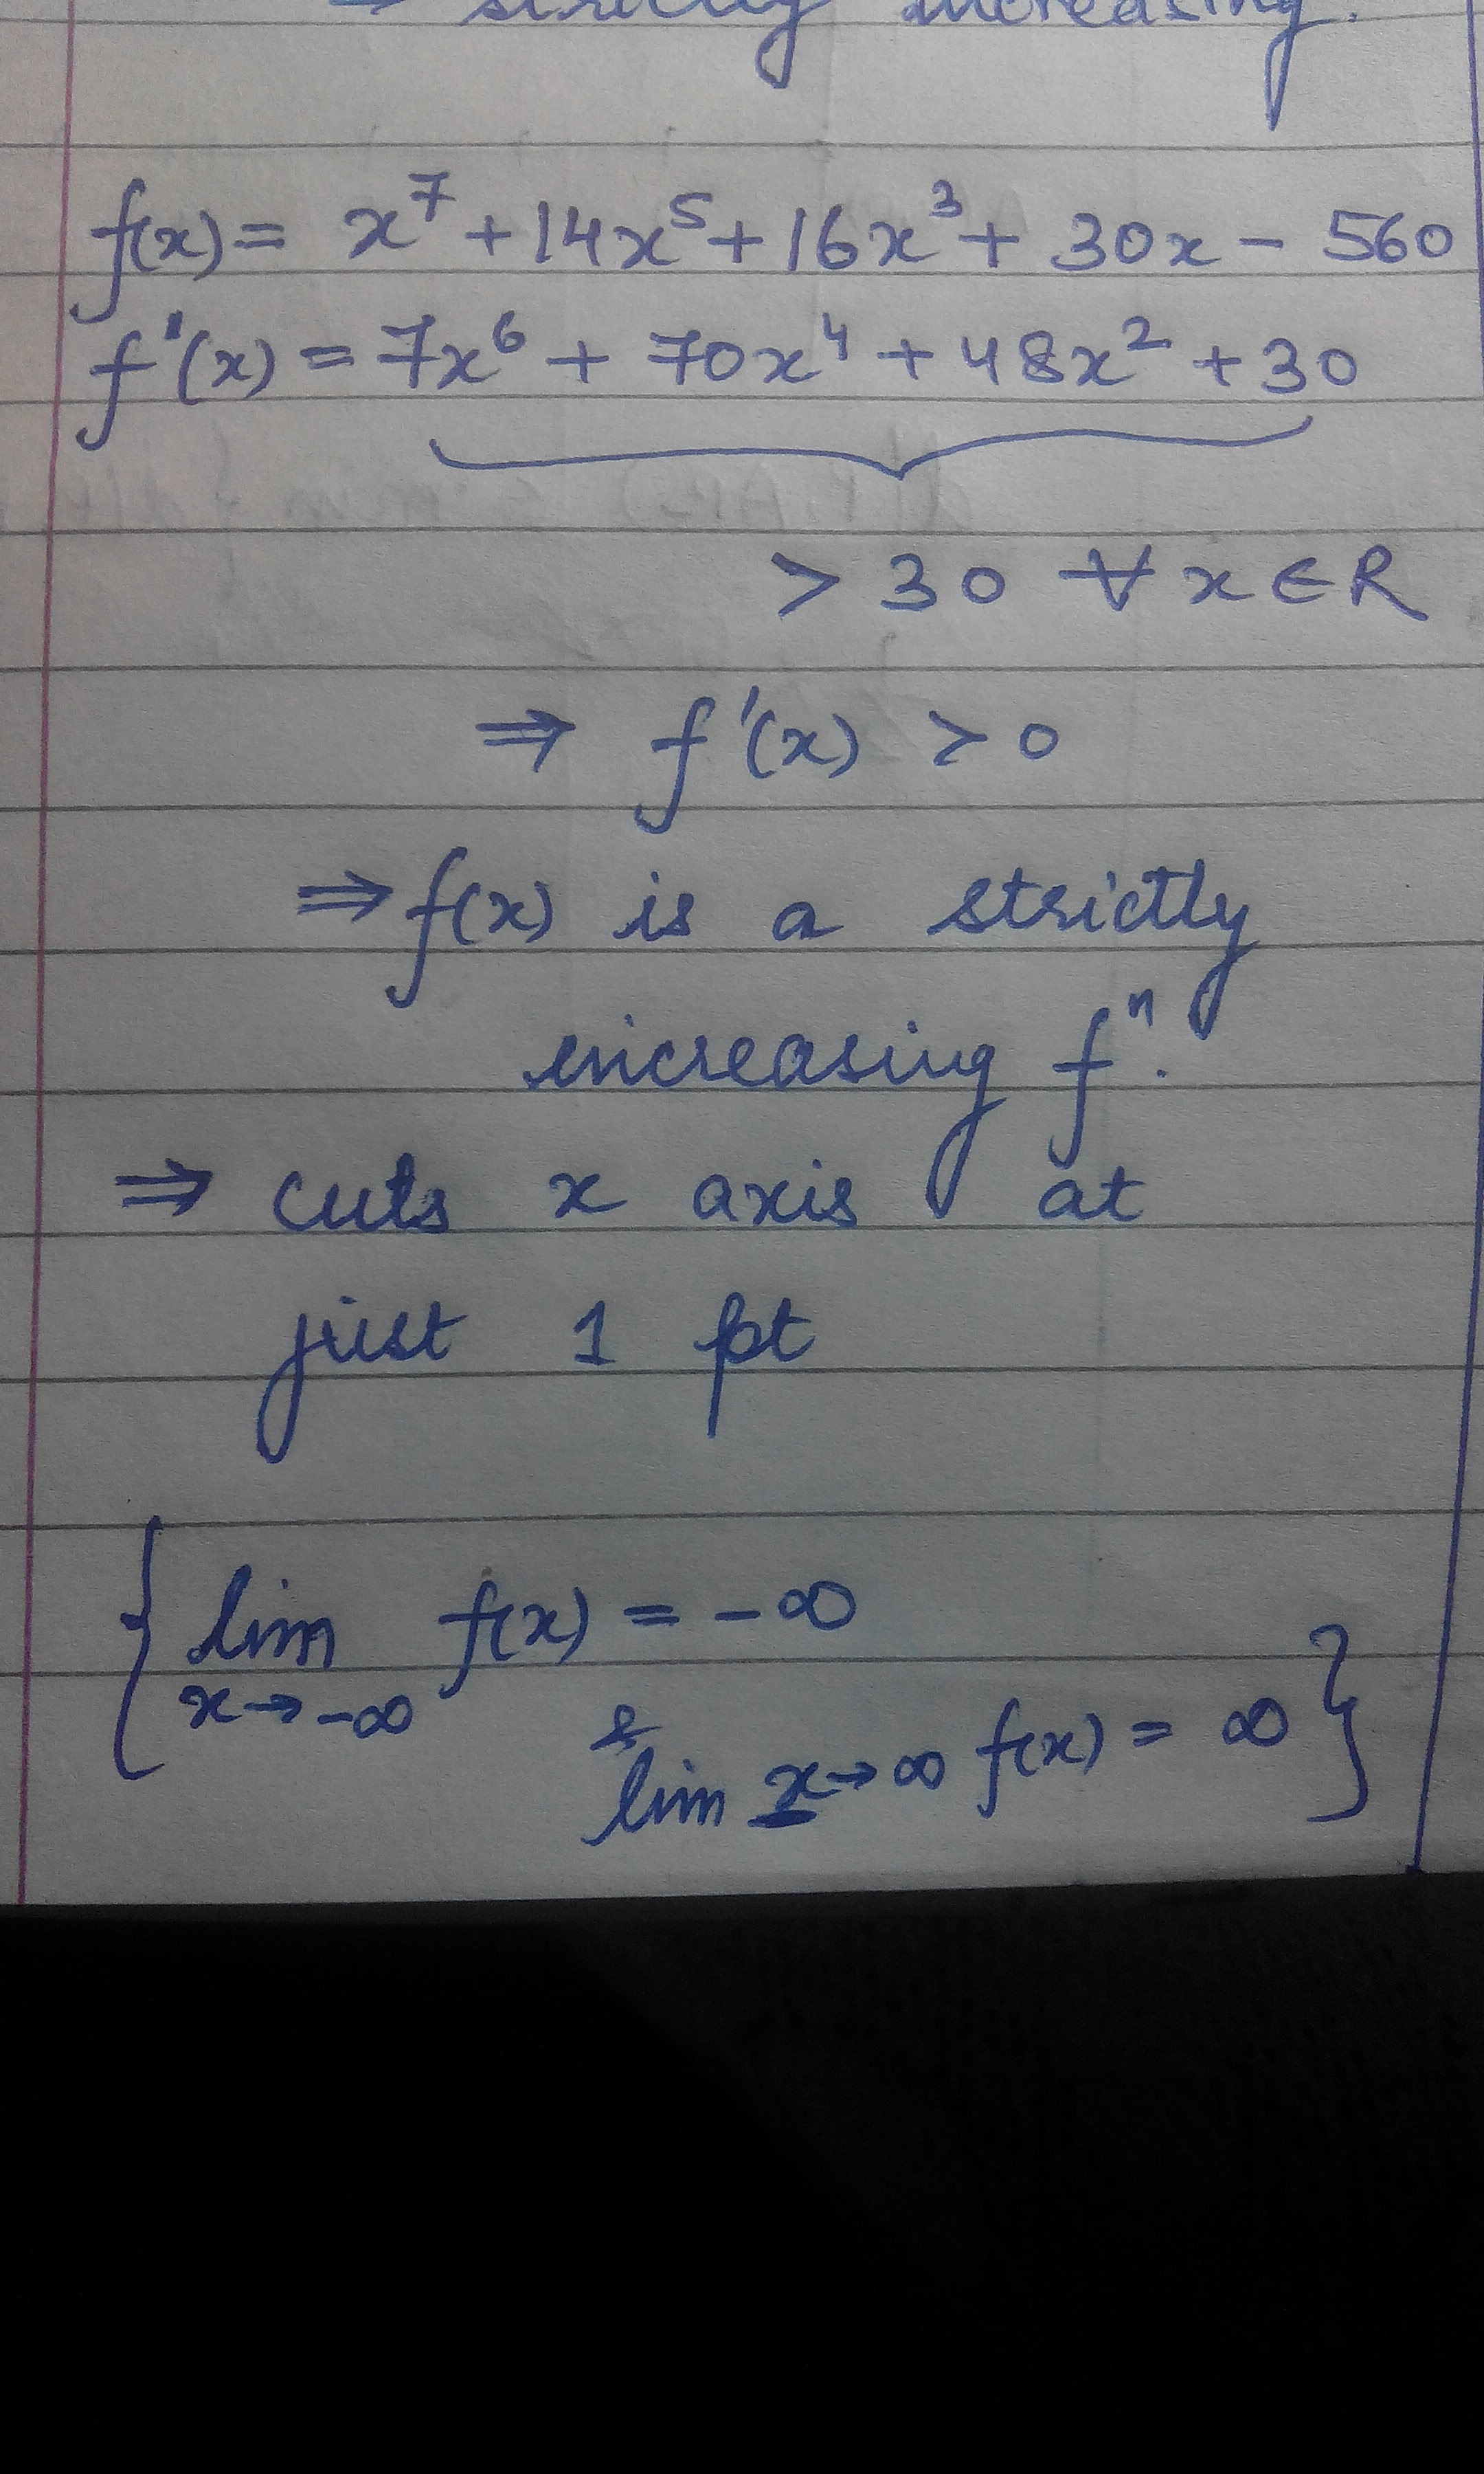 ⇒ strictly increasing.
f(x) = x⁷ + 14x⁵ + 16x³ + 30x - 560
f'(x) = 7x⁶ + 70x⁴ + 48x² + 30
> 30 ∀ x ∈ R
⇒ f'(x) > 0
⇒ f(x) is a strictly
increasing fⁿ.
⇒ cuts x axis at
just 1 pt
{ lim f(x) = -∞
x → -∞
&
lim x → ∞ f(x) = ∞ }